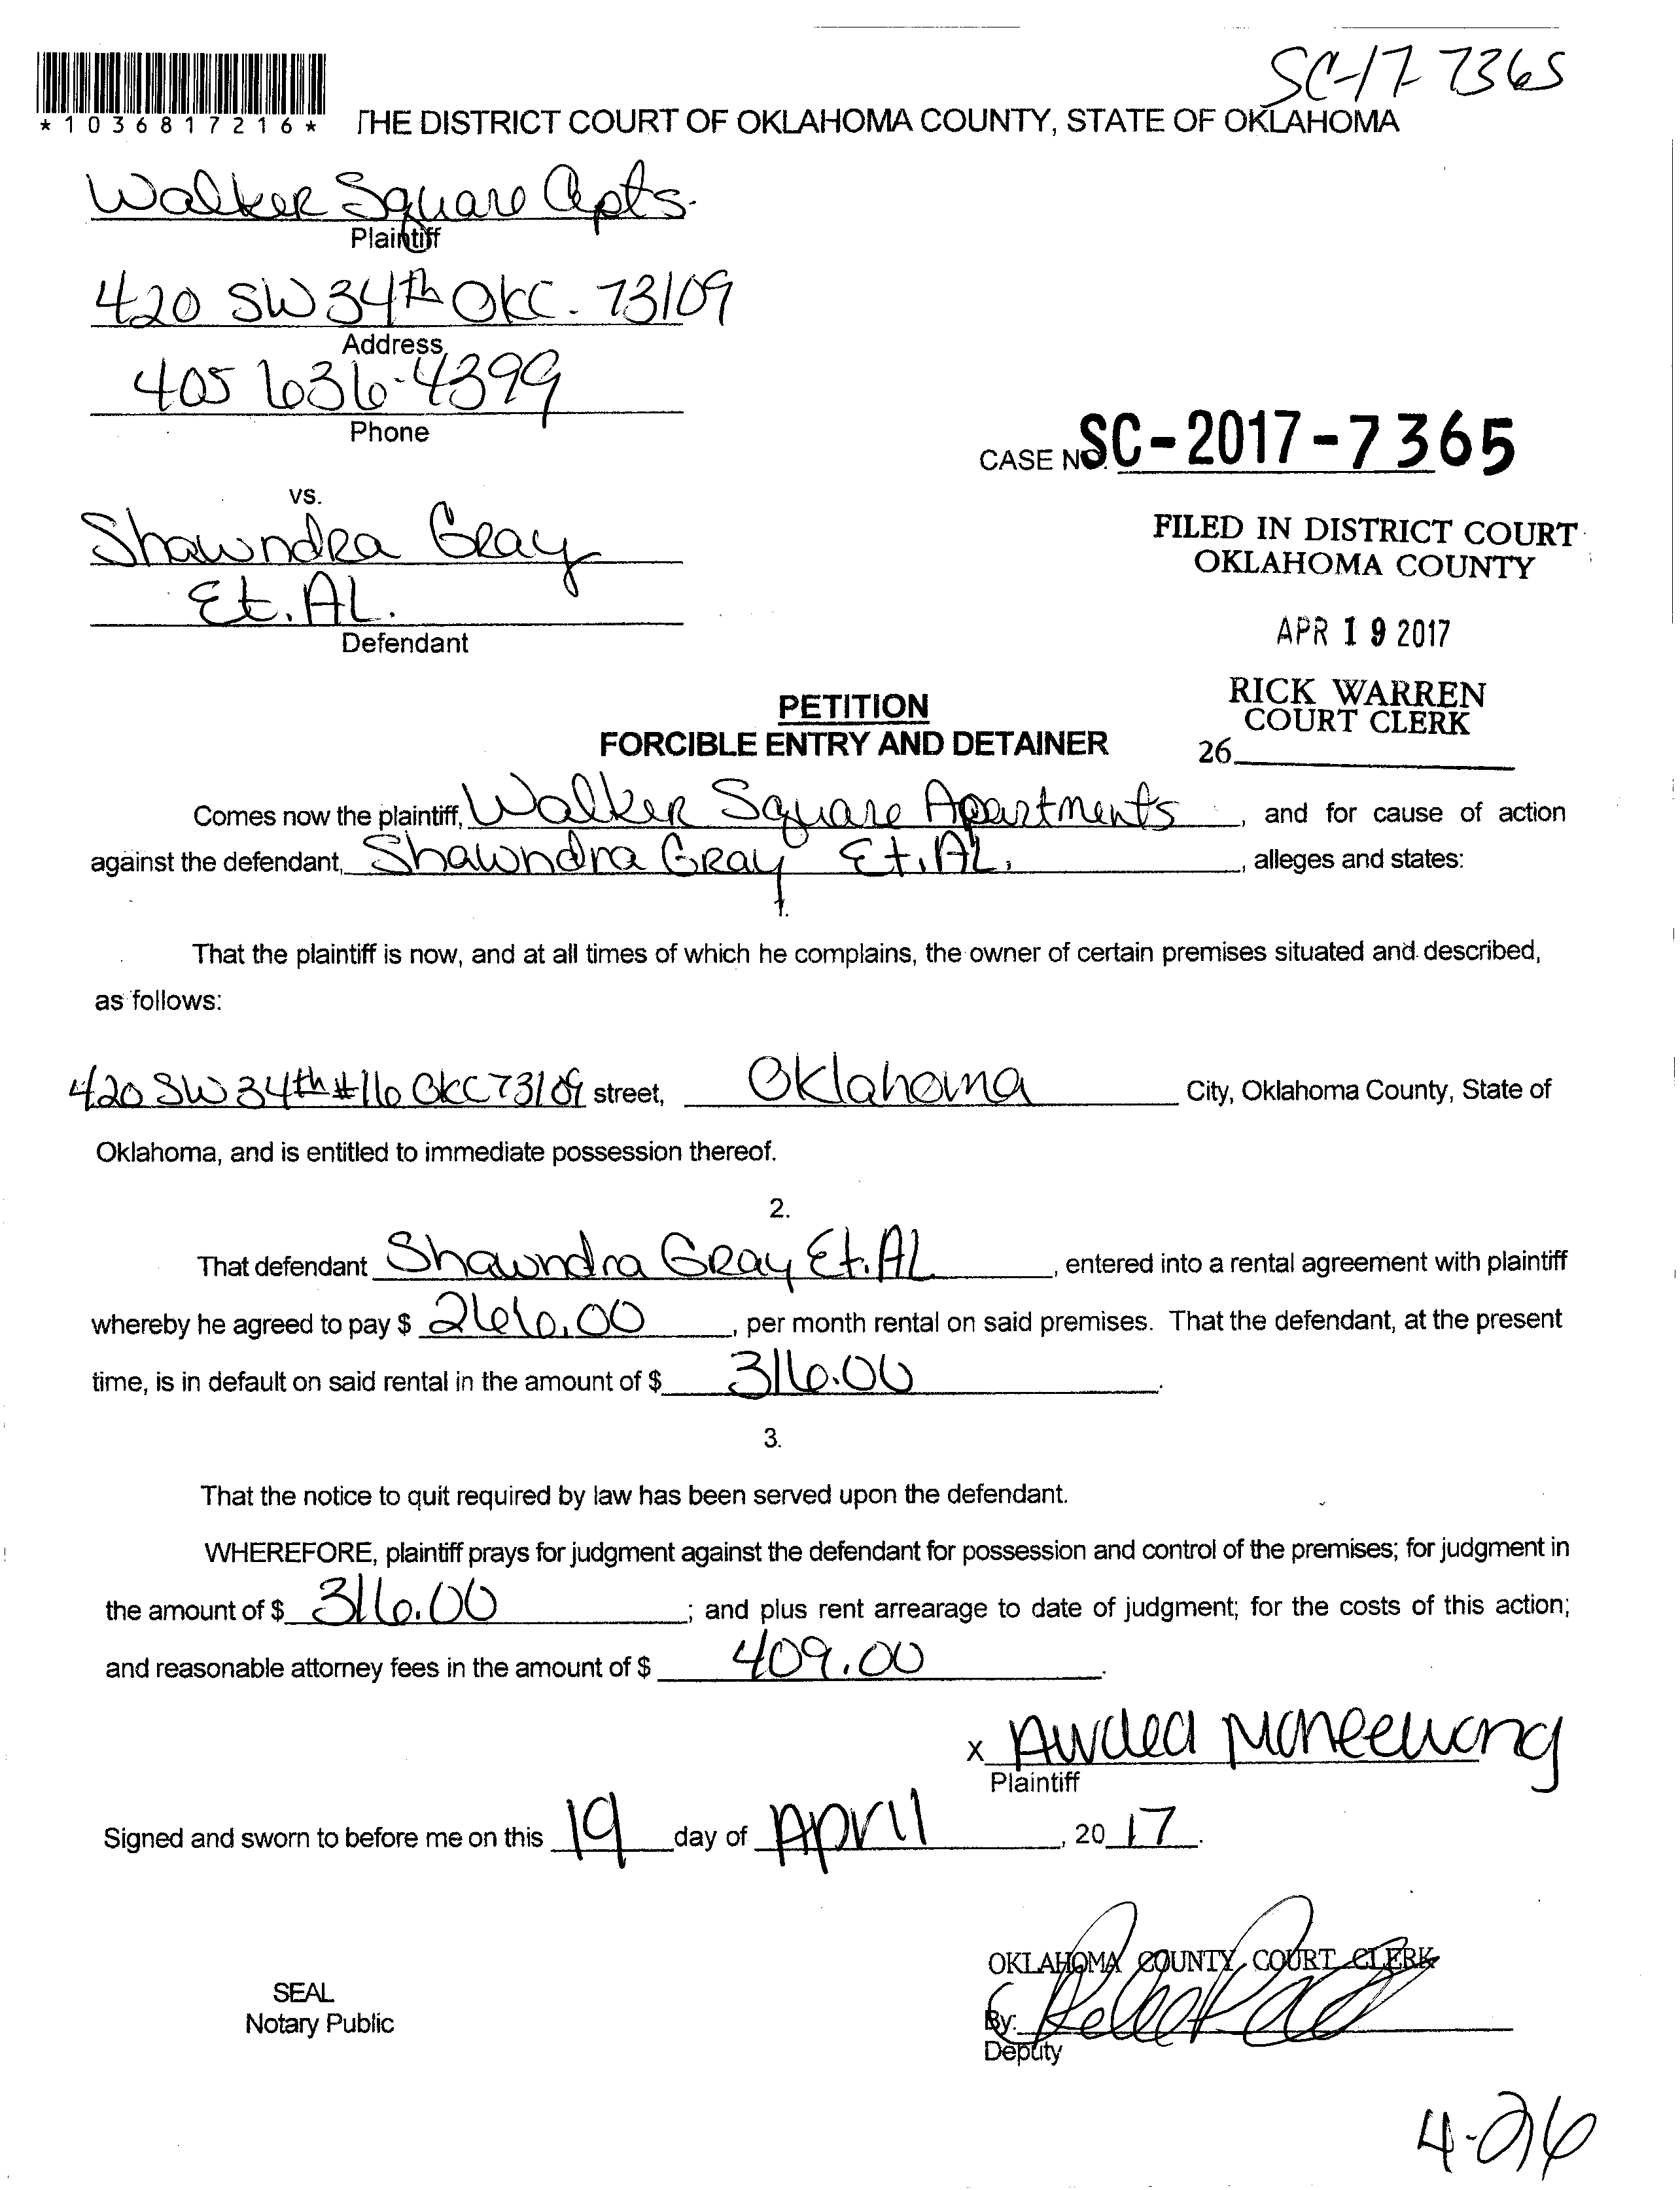 SC-17-7365
*1036817216*
THE DISTRICT COURT OF OKLAHOMA COUNTY, STATE OF OKLAHOMA
Walker Square Apts.
Plaintiff
420 SW 34th OKC. 73109
Address
405 636-4399
Phone
CASE NO. SC-2017-7365
vs.
Shawndra Gray
Et. AL.
Defendant
FILED IN DISTRICT COURT
OKLAHOMA COUNTY
APR 19 2017
RICK WARREN
COURT CLERK
26
PETITION
FORCIBLE ENTRY AND DETAINER
Comes now the plaintiff, Walker Square Apartments, and for cause of action
against the defendant, Shawndra Gray Et. AL., alleges and states:
1.
That the plaintiff is now, and at all times of which he complains, the owner of certain premises situated and described,
as follows:
420 SW 34th #16 OKC 73109 street, Oklahoma City, Oklahoma County, State of
Oklahoma, and is entitled to immediate possession thereof.
2.
That defendant Shawndra Gray Et. AL, entered into a rental agreement with plaintiff
whereby he agreed to pay $ 266.00, per month rental on said premises. That the defendant, at the present
time, is in default on said rental in the amount of $ 316.00.
3.
That the notice to quit required by law has been served upon the defendant.
WHEREFORE, plaintiff prays for judgment against the defendant for possession and control of the premises; for judgment in
the amount of $ 316.00; and plus rent arrearage to date of judgment; for the costs of this action;
and reasonable attorney fees in the amount of $ 409.00.
x
Plaintiff
Signed and sworn to before me on this 19 day of April, 2017.
OKLAHOMA COUNTY COURT CLERK
SEAL
Notary Public
By:
Deputy
4-26